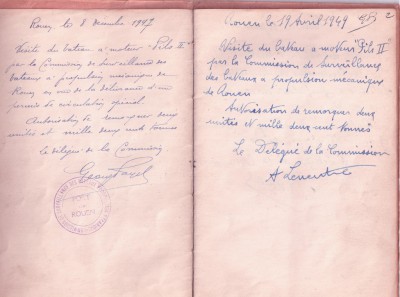 Rouen, le 8 Décembre 1947
Visite du bateau à moteur "Pilo II"
par la Commission de Surveillance des
bateaux à propulsion mécanique de
Rouen en vue de la délivrance d'un
permis de circulation spécial
Autorisation de remorquer deux
unités et mille deux cents tonnes
Le délégué de la Commission
PORT
DE
ROUEN
Rouen le 19 Avril 1949
2
Visite du bateau à moteur "Pilo II"
par la Commission de Surveillance
des bateaux à propulsion mécanique
de Rouen
Autorisation de remorquer deux
unités et mille deux cent tonnes"
Le Délégué de la Commission